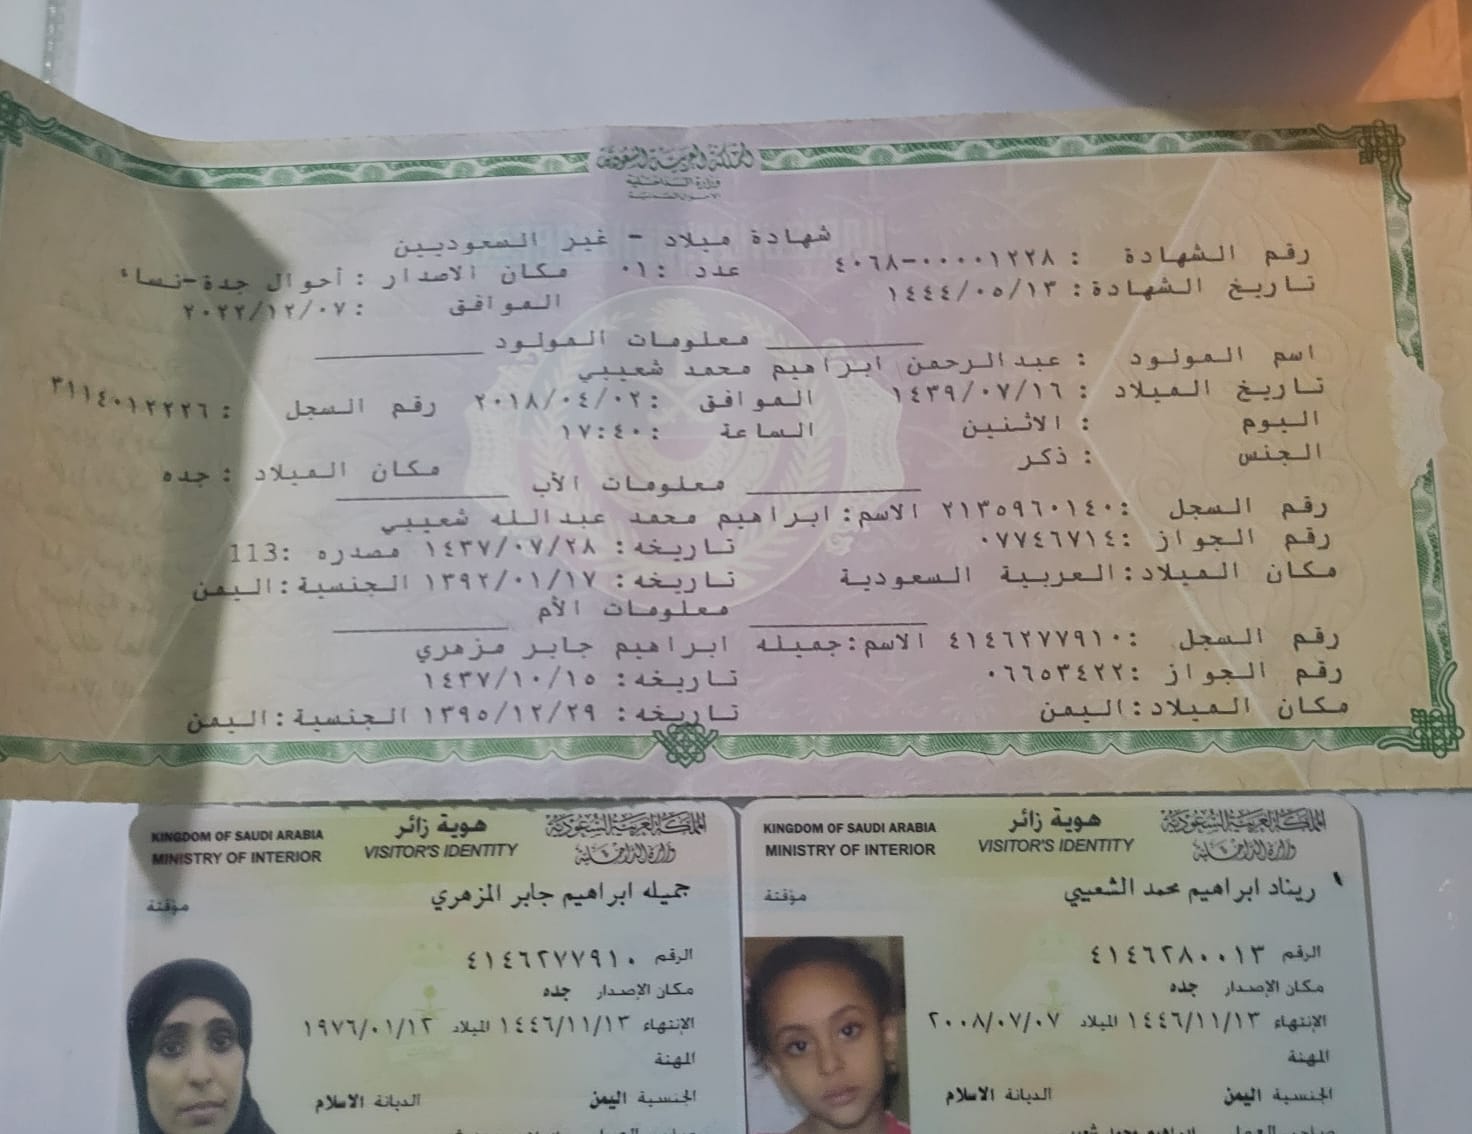 المملكة العربية السعودية
وزارة الداخلية
الاحوال المدنية
شهادة ميلاد - غير السعوديين
رقم الشهادة : ٠٠٠٠١٢٢٨-٤٠٦٨ عدد :٠١ مكان الاصدار : أحوال جدة-نساء
تاريخ الشهادة: ١٤٤٤/٠٥/١٣ الموافق :٢٠٢٢/١٢/٠٧
معلومات المولود
اسم المولود : عبدالرحمن ابراهيم محمد شعيبي
تاريخ الميلاد : ١٤٣٩/٠٧/١٦ الموافق :٢٠١٨/٠٤/٠٢ رقم السجل :٣١١٤٠١٢٢٢٦
اليوم : الاثنين الساعة :١٧:٤٠
الجنس : ذكر مكان الميلاد : جده
معلومات الأب
رقم السجل :٢١٣٥٩٦٠١٤٠ الاسم: ابراهيم محمد عبدالله شعيبي
رقم الجواز :٠٧٧٤٦٧١٤ تاريخه: ١٤٣٧/٠٧/٢٨ مصدره :113
مكان الميلاد: العربية السعودية تاريخه: ١٣٩٢/٠١/١٧ الجنسية: اليمن
معلومات الأم
رقم السجل :٤١٤٦٢٧٧٩١٠ الاسم: جميله ابراهيم جابر مزهري
رقم الجواز :٠٦٦٥٣٤٢٢ تاريخه: ١٤٣٧/١٠/١٥
مكان الميلاد: اليمن تاريخه: ١٣٩٥/١٢/٢٩ الجنسية: اليمن
المملكة العربية السعودية
وزارة الداخلية
هوية زائر
VISITOR'S IDENTITY
KINGDOM OF SAUDI ARABIA
MINISTRY OF INTERIOR
ريناد ابراهيم محمد الشعيبي
مؤقتة
الرقم ٤١٤٦٢٨٠٠١٣
مكان الإصدار جده
الإنتهاء ١٤٤٦/١١/١٣ الميلاد ٢٠٠٨/٠٧/٠٧
المهنة
الجنسية اليمن الديانة الاسلام
المملكة العربية السعودية
وزارة الداخلية
هوية زائر
VISITOR'S IDENTITY
KINGDOM OF SAUDI ARABIA
MINISTRY OF INTERIOR
جميله ابراهيم جابر المزهري
مؤقتة
الرقم ٤١٤٦٢٧٧٩١٠
مكان الإصدار جده
الإنتهاء ١٤٤٦/١١/١٣ الميلاد ١٩٧٦/٠١/١٢
المهنة
الجنسية اليمن الديانة الاسلام